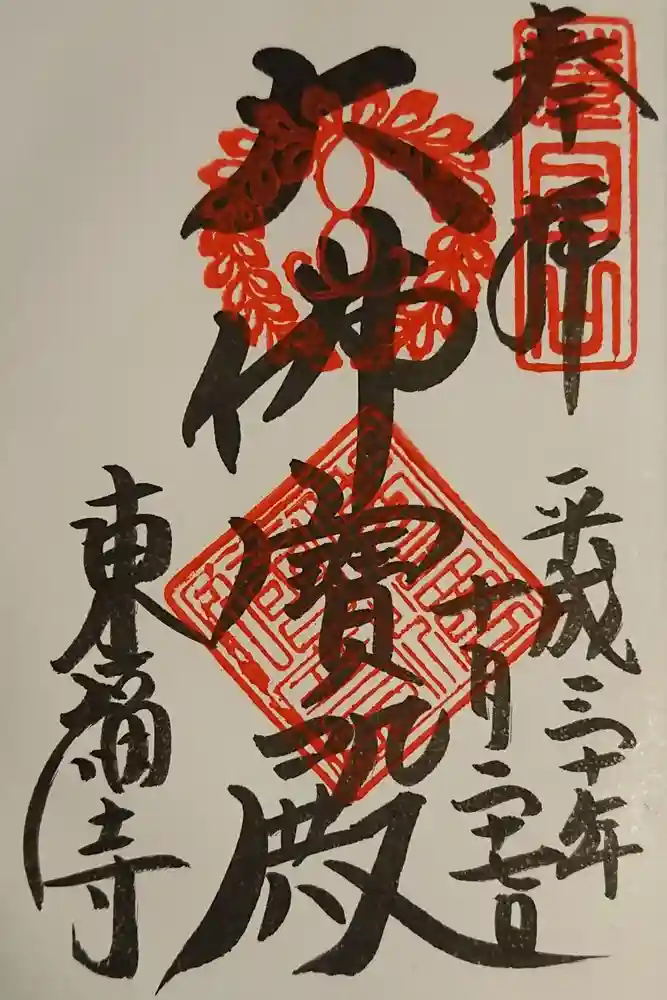 奉拝
平成三十年
十月二十七日
大佛寳殿
東福寺